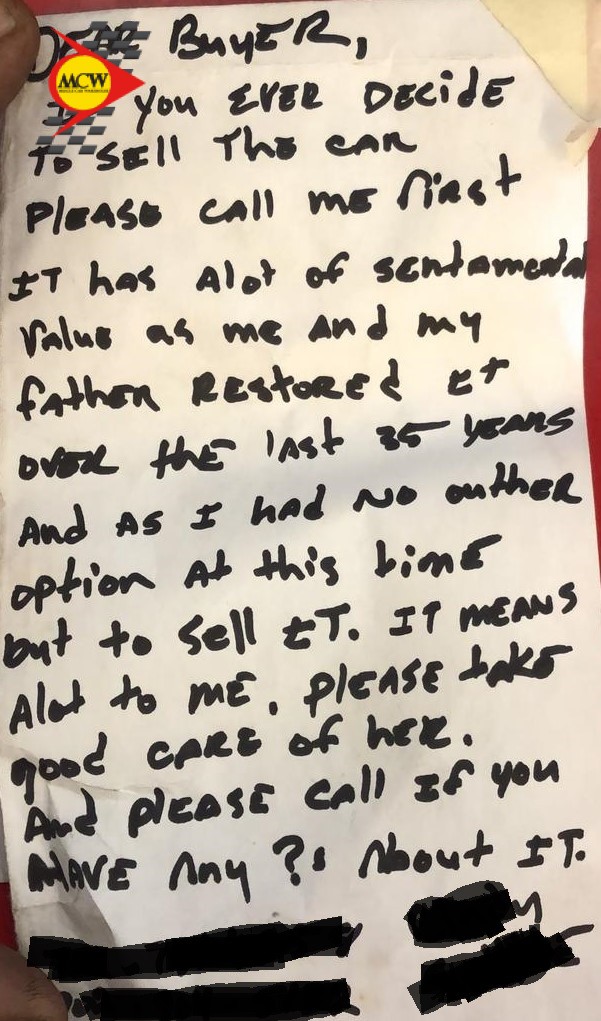 DEAR BuyER,
MCW
MUSCLE CAR WAREHOUSE
you EVER DECIDE
To SEll The CAR
PLEASE CAll me first
IT has Alot of sentamental
Value as me And my
fATHER RESTORED It
OVER the lAst 35 YEARS
And AS I had No outher
option At this time
but to Sell IT. IT MEANS
Alot to ME. PlEASE tAKE
good CARE of hER.
And plEASE CAll If you
HAVE Any ?s About IT.